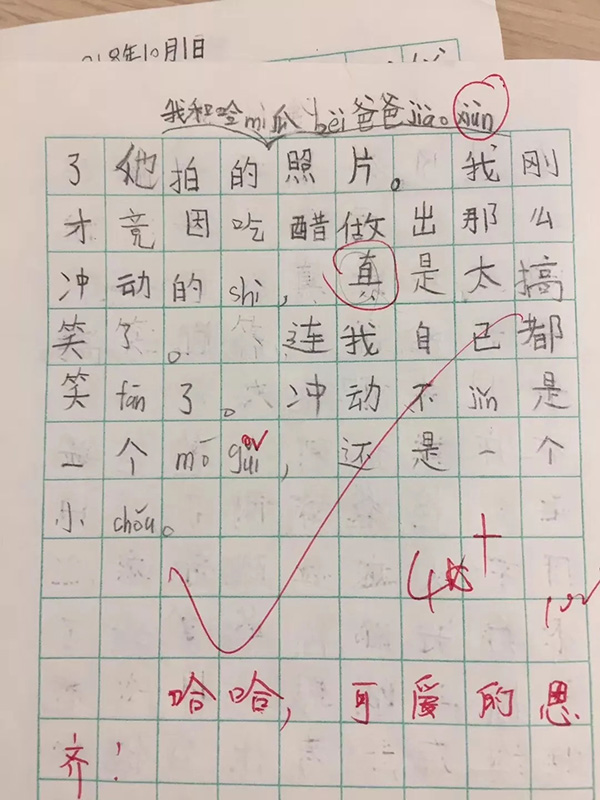 2018年10月1日
我和哈mi瓜bèi爸爸jiào xùn
了他拍的照片。 我刚
才竟因吃醋做出那么
冲动的shì,真是太搞
笑了。 连我自已都
笑fān了。冲动不jǐn是
一个mō guǐ,还是一个
小chǒu。
4女+
哈哈,可爱的思
齐!